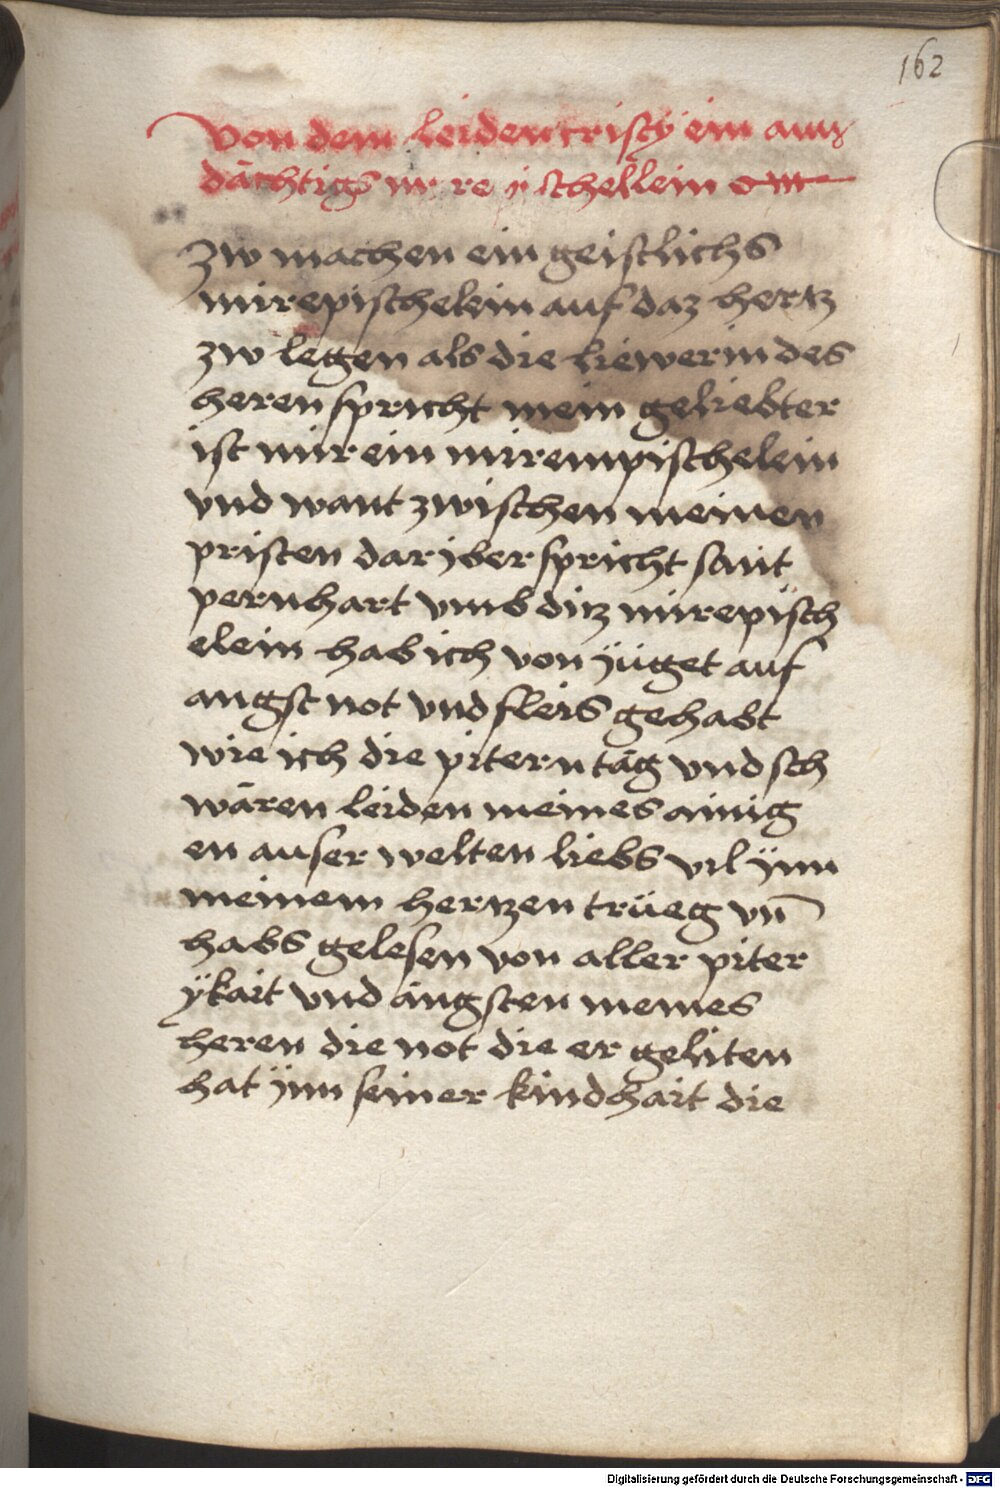 162
Von dem leiden cristy ein ann
dächtigs mirrepischellein
zw machen ein geistlichs
mirepischelein auf daz hertz
zw legen als die liewerin des
heren spricht mein geliebter
ist mir ein mirempischelein
vnd want zwischen meinen
pristen dar jber spricht sant
pernhart vmb ditz mirepisch
elein hab ich von jüget auf
angst not vnd fleis gehabt
wie ich die pitern täg vnd sch
wären leiden meines ainig
en auserwelten liebs vil ÿnn
meinem hertzen trüeg vn̄
habs gelesen von aller piter
ÿkait vnd ängsten meines
heren die not die er geliten
hat ÿnn seiner kindhait die
Digitalisierung gefördert durch die Deutsche Forschungsgemeinschaft - DFG